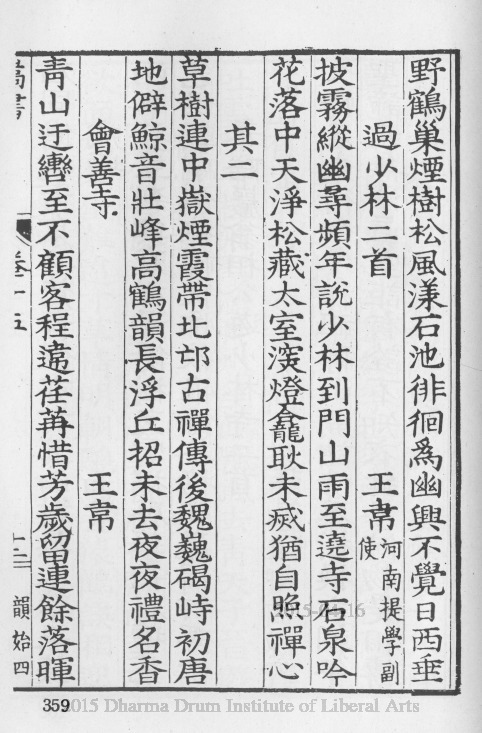 野鶴巢煙樹松風漾石池徘徊為幽興不覺日西垂
過少林二首 王𢂷 河南提學副使
披霧縱幽尋頻年說少林到門山雨至遶寺石泉吟
花落中天淨松藏太室深燈龕耿未滅猶自照禪心
其二
草樹連中嶽煙霞帶北邙古禪傳後魏巍碣峙初唐
地僻鯨音壯峰高鶴韻長浮丘招未去夜夜禮名香
會善寺 王𢂷
青山迂轡至不顧客程違荏苒惜芳歲留連餘落暉
卷十五
韻始四
359
2015 Dharma Drum Institute of Liberal Arts